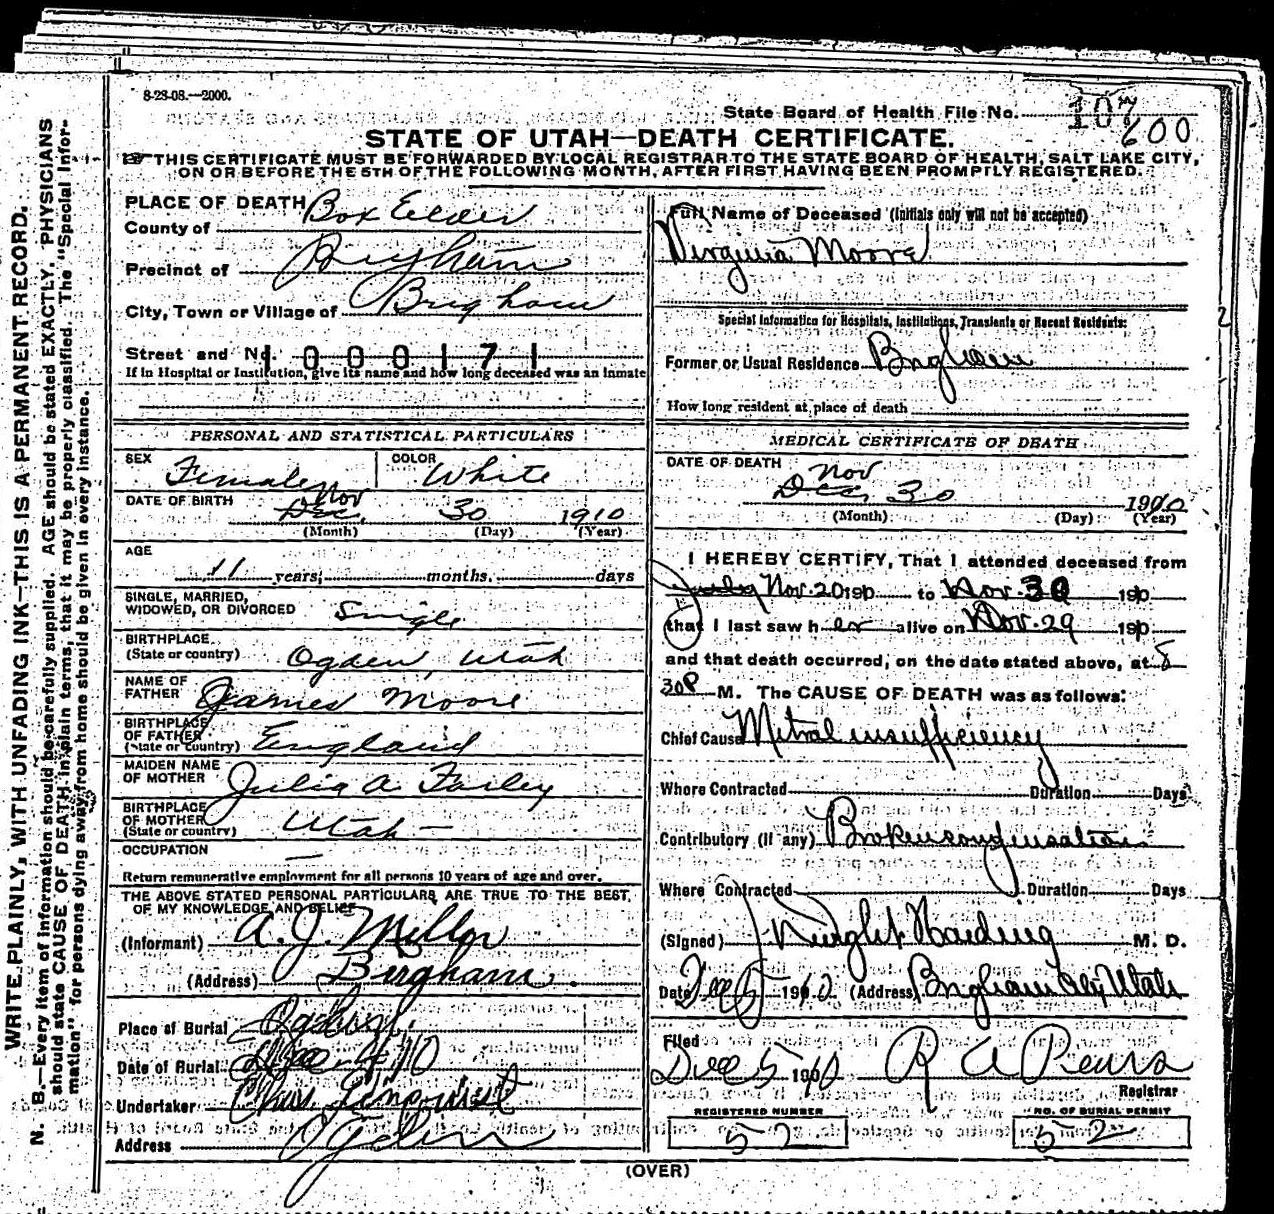 8-28-08.—2000.
State Board of Health File No. 107
600
STATE OF UTAH—DEATH CERTIFICATE.
THIS CERTIFICATE MUST BE FORWARDED BY LOCAL REGISTRAR TO THE STATE BOARD OF HEALTH, SALT LAKE CITY,
ON OR BEFORE THE 5TH OF THE FOLLOWING MONTH, AFTER FIRST HAVING BEEN PROMPTLY REGISTERED.
WRITE PLAINLY, WITH UNFADING INK—THIS IS A PERMANENT RECORD.
N. B.—Every item of information should be carefully supplied. AGE should be stated EXACTLY. PHYSICIANS
should state CAUSE OF DEATH in plain terms, that it may be properly classified. The "Special Infor-
mation" for persons dying away from home should be given in every instance.
PLACE OF DEATH
County of Box Elder
Precinct of Brigham
City, Town or Village of Brigham
Street and No. 1000171
If in Hospital or Institution, give its name and how long deceased was an inmate
PERSONAL AND STATISTICAL PARTICULARS
SEX Female
COLOR White
DATE OF BIRTH Dec. Nov 30 1910
(Month) (Day) (Year)
AGE
11 years, months, days
SINGLE, MARRIED,
WIDOWED, OR DIVORCED Single
BIRTHPLACE
(State or country) Ogden, Utah
NAME OF
FATHER James Moore
BIRTHPLACE
OF FATHER
(State or country) England
MAIDEN NAME
OF MOTHER Julia A. Farley
BIRTHPLACE
OF MOTHER
(State or country) Utah
OCCUPATION —
Return remunerative employment for all persons 10 years of age and over.
THE ABOVE STATED PERSONAL PARTICULARS ARE TRUE TO THE BEST
OF MY KNOWLEDGE AND BELIEF
(Informant) A. J. Mellor
(Address) Birgham.
Place of Burial Ogden
Date of Burial Dec 4 10
Undertaker Chas Linquist
Address Ogden
Full Name of Deceased (Initials only will not be accepted)
Virginia Moore
Special Information for Hospitals, Institutions, Transients or Recent Residents:
Former or Usual Residence Brigham
How long resident at place of death
MEDICAL CERTIFICATE OF DEATH
DATE OF DEATH Nov
Dec. 30 1910
(Month) (Day) (Year)
I HEREBY CERTIFY, That I attended deceased from
July Nov. 20 1910 to Nov. 30 1910
that I last saw her alive on Nov. 29 1910
and that death occurred, on the date stated above, at 8
30 P M. The CAUSE OF DEATH was as follows:
Chief Cause Mitral insufficiency
Where Contracted Duration Days
Contributory (if any) Broken compensation
Where Contracted Duration Days
(Signed) J Knight Harding M. D.
Date Dec 5 1910 (Address) Brigham City Utah
Filed
Dec 5 1910 R A Pears
Registrar
REGISTERED NUMBER
52
NO. OF BURIAL PERMIT
52
(OVER)